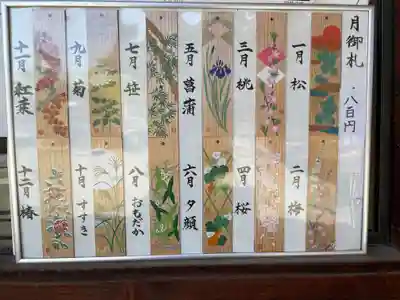 月御札 八百円
一月 松
二月 梅
三月 桃
四月 桜
五月 菖蒲
六月 夕顔
七月 笹
八月 おもだか
九月 菊
十月 すすき
十一月 紅葉
十二月 椿